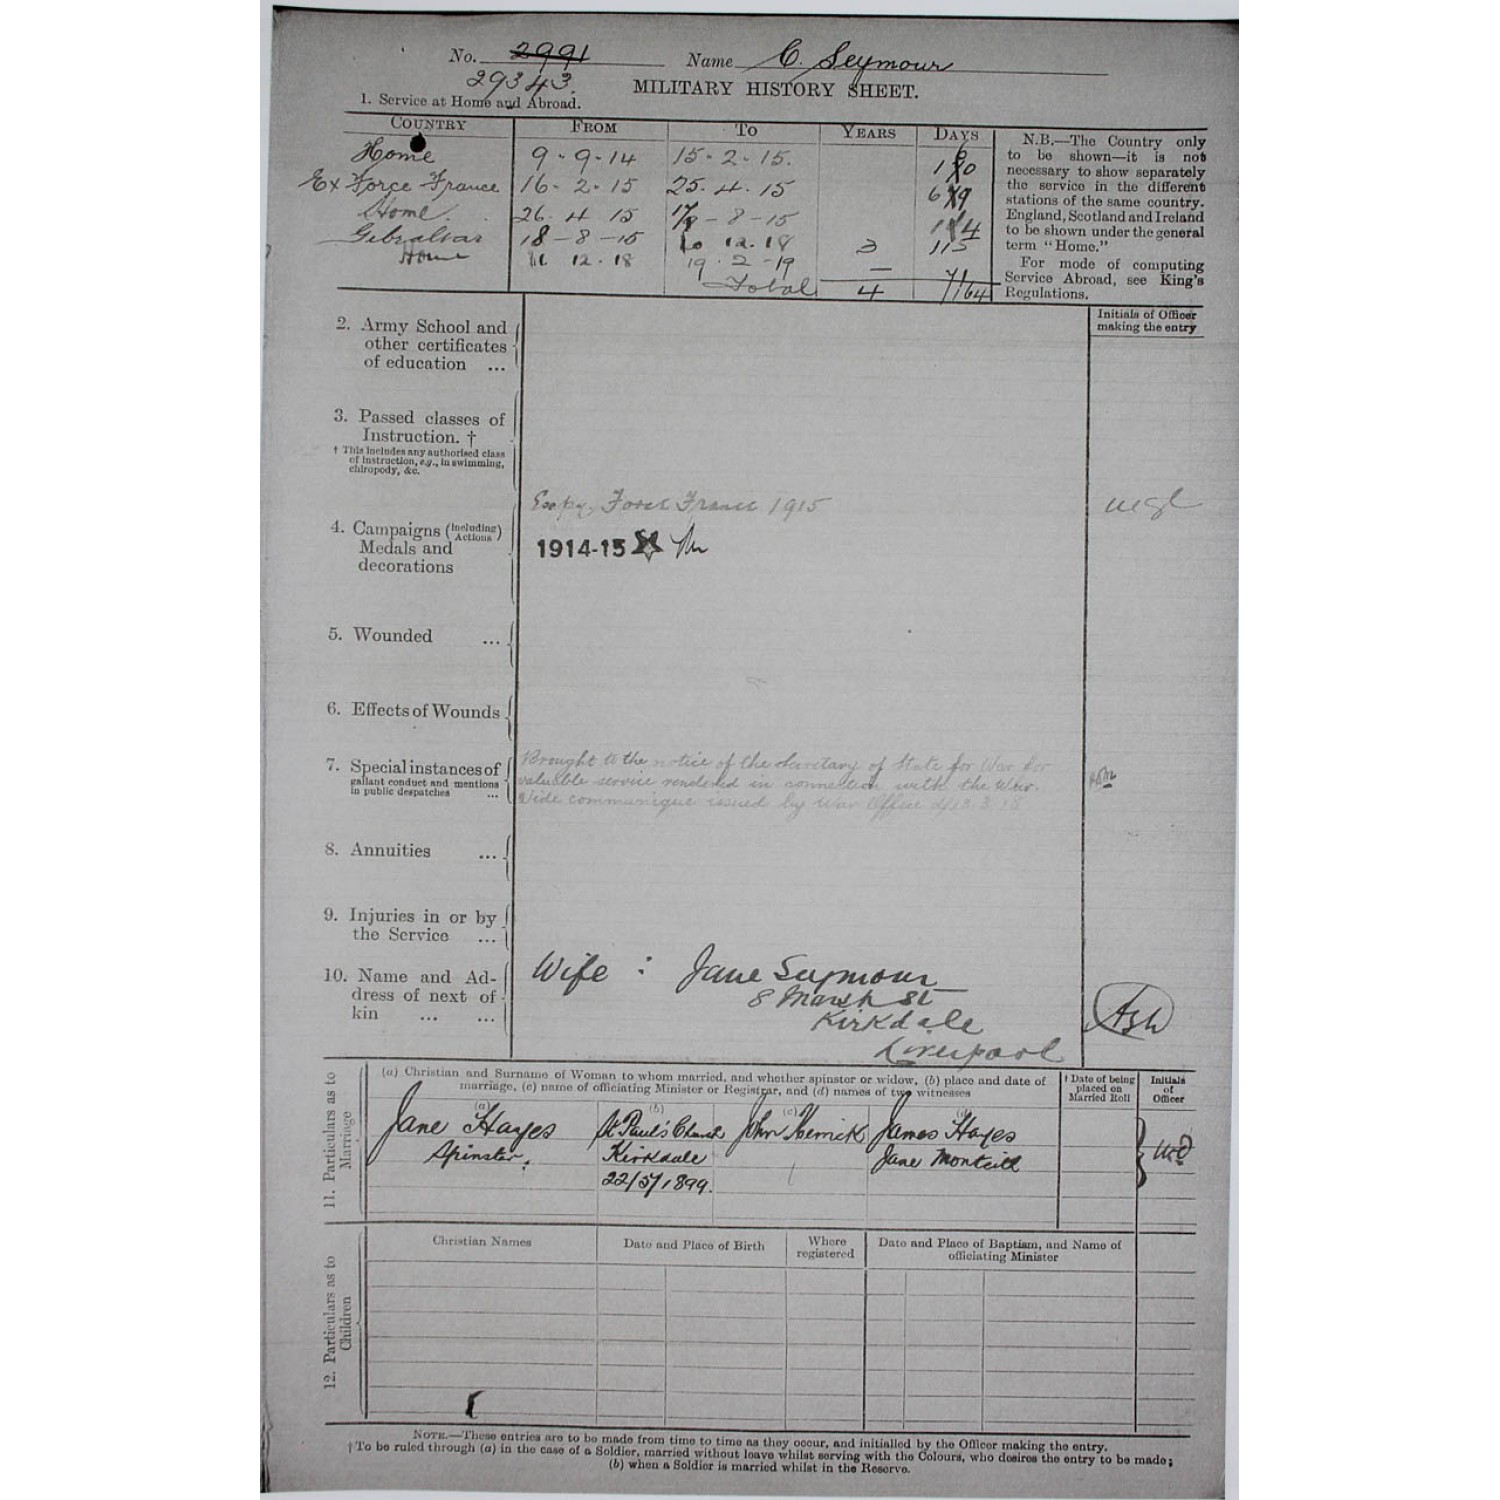 No. 2991 Name C. Seymour
29343.
MILITARY HISTORY SHEET.
1. Service at Home and Abroad.
COUNTRY FROM TO YEARS DAYS
Home 9-9-14 15-2-15.
Ex Force France 16-2-15 25-4-15 69
Home. 26 4 15 17-8-15 114
Gibraltar 18-8-15 10 12.18 3 115
Home 11 12.18 19.2-19 — 71
Total 4 164
N.B.—The Country only
to be shown—it is not
necessary to show separately
the service in the different
stations of the same country.
England, Scotland and Ireland
to be shown under the general
term "Home."
For mode of computing
Service Abroad, see King's
Regulations.
Initials of Officer
making the entry
2. Army School and
other certificates
of education ...
3. Passed classes of
Instruction. †
† This includes any authorised class
of instruction, e.g., in swimming,
chiropody, &c.
Force France 1915
4. Campaigns (Including Actions)
Medals and
decorations
1914-15
5. Wounded ...
6. Effects of Wounds
7. Special instances of
gallant conduct and mentions
in public despatches ...
Brought to the notice of the Secretary of State for War for
valuable service rendered in connection with the War.
Vide communique issued by War Office d/13.3.18
8. Annuities ...
9. Injuries in or by
the Service ...
10. Name and Ad-
dress of next of
kin ... ...
Wife : Jane Seymour
8 Marsh St
Kirkdale
Liverpool
11. Particulars as to
Marriage
(a) Christian and Surname of Woman to whom married, and whether spinster or widow, (b) place and date of
marriage, (c) name of officiating Minister or Registrar, and (d) names of two witnesses
† Date of being
placed on
Married Roll
Initials
of
Officer
(a) (b) (c) (d)
Jane Hayes St Paul's Church John Herrick James Hayes
Spinster. Kirkdale Jane Monteith
22/5/1899.
12. Particulars as to
Children
Christian Names Date and Place of Birth Where
registered Date and Place of Baptism, and Name of
officiating Minister
NOTE.—These entries are to be made from time to time as they occur, and initialled by the Officer making the entry.
† To be ruled through (a) in the case of a Soldier, married without leave whilst serving with the Colours, who desires the entry to be made;
(b) when a Soldier is married whilst in the Reserve.